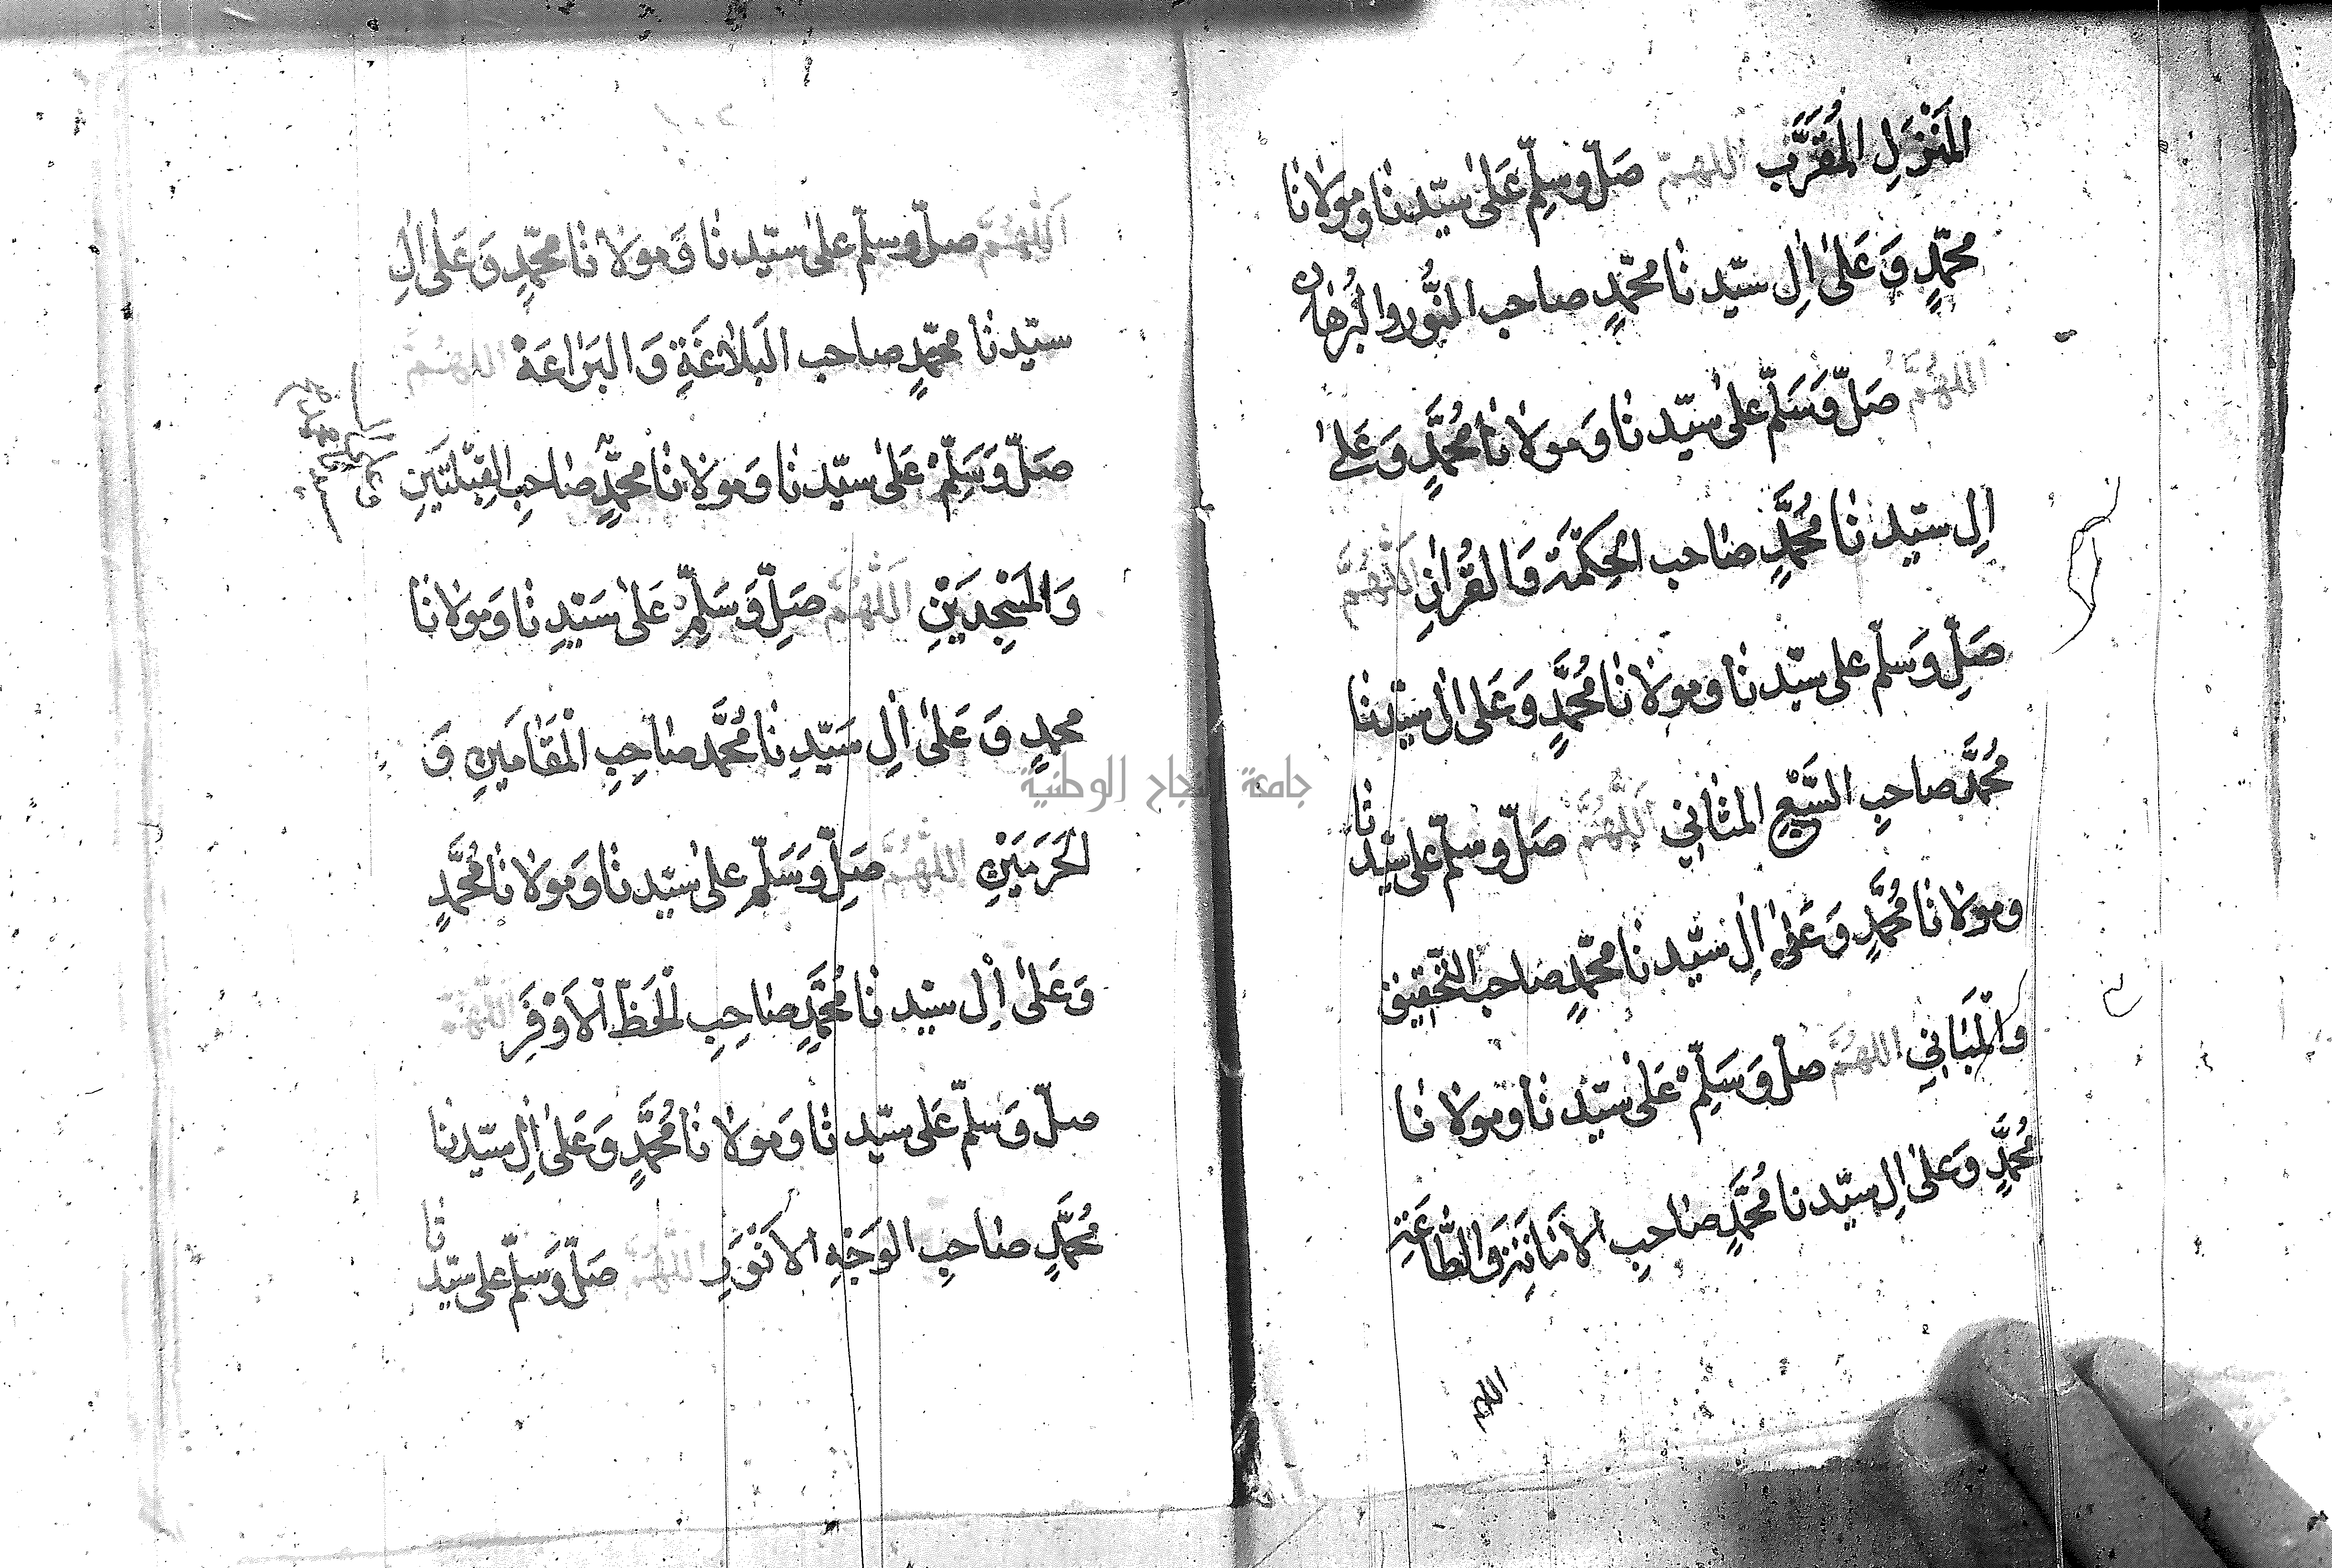 المَنْزِلِ المُقَرَّبِ اللهمّ صَلّ وسلِّمْ عَلىٰ سيّدنا ومولانا
محمّدٍ وَعَلىٰ اٰلِ سيّدنا محمّدٍ صاحب النُّور والبُرهانِ
اللهُمَّ صَلّ وَسَلّم علىٰ سيّدنا وَمولانا مُحمَّدٍ وَعَلىٰ
اٰلِ سيّدنا مُحمَّدٍ صاحب الحِكمَة وَالقُرْاٰنِ اَللّٰهُمَّ
صَلِّ وَسلّم على سيّدنا ومولانا مُحمَّدٍ وَعَلىٰ اٰلِ سيّدنا
مُحمَّد صاحبِ السَّبْعِ المثاني اَللّٰهُمَّ صَلّ وسلّم على سيّدنا
ومولانا مُحمَّدٍ وَعَلىٰ اٰلِ سيّدنا محمّدٍ صاحب التَّحقيق
وَالْمَبَاني اللهُمَّ صلّ وَسَلِّمْ عَلىٰ سيّدنا ومولانا
مُحمَّدٍ وَعلىٰ اٰلِ سيّدنا مُحمَّدٍ صاحبِ الامَانَةِ وَالطَّاعَةِ
اللهم
اَللّٰهُمَّ صلّ وسلّم علىٰ سيّدنا وَمولانا محمّدٍ وَعَلىٰ اٰلِ
سيّدنا محمّدٍ صاحب البَلاغَةِ وَالبَراعَة اللهُمَّ
صَلّ وَسَلِّمْ عَلىٰ سيّدنا وَمولانا محمّدٍ صاحِبِ القِبْلتَينِ
وعلى ال سيدنا محمد
وَالمَسْجِدَيْنِ اَللّٰهُمَّ صَلِّ وَسَلِّمْ عَلىٰ سَيّدِنا وَمولانا
محمدٍ وَعَلىٰ اٰلِ سَيّدِنا مُحمَّد صاحِبِ الْمَقَامَينِ وَ
الحَرَمَيْنِ اللّٰهُمَّ صَلِّ وَسَلّم علىٰ سيّدنا وَمولانا مُحمَّدٍ
وَعَلىٰ اٰلِ سيّدنا مُحمَّدٍ صاحِبِ الْحَظّ الاَوْفَرِ اللّٰهُمَّ
صلّ وَسلّم عَلى سيّدنا وَمولانا مُحمَّدٍ وَعَلىٰ اٰلِ سيّدنا
مُحمَّدٍ صاحبِ الوَجْهِ الاَنْوَرِ اللّٰهُمَّ صَلّ وَسَلّم على سيّدنا
جامعة النجاح الوطنية